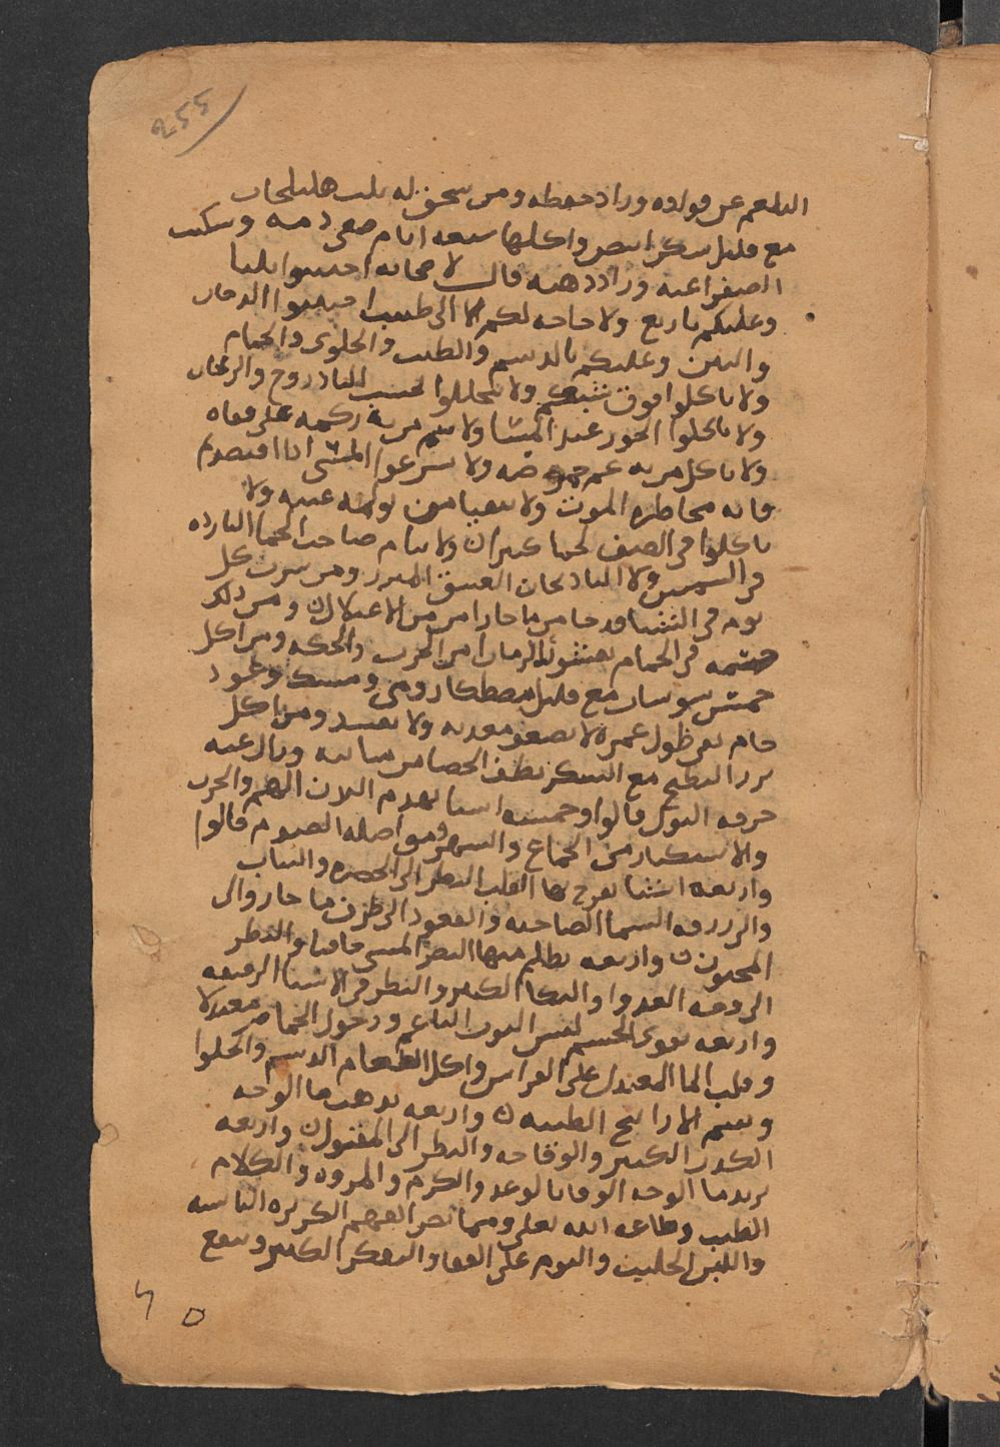 ٢٥٥
البلغم عن فواده وزاد حفظه ومن سحق له تلت هليلجات
مع قليل سكر ابيض واكلها سبعه ايام صفى دمه وسكنت
الصفرا عنه وزاد دهنه قال لاصحابه احتسوا بلبا
وعليكم باربع ولا حاجه لكم الا الى طبيب اجتنبوا الدخان
والنتن وعليكم بالدسم والطيب والحلوى والحمام
ولا تاكلوا فوق شبعكم ولا تتخللوا بخشب البادروج والريحان
ولا تاكلوا الجوز عند المسا ولا ينم من به زكمه على قفاه
ولا ياكل من به غم حموضه ولا يسرع المشى ادا افتصد
فانه مخاطره الموت ولا يتقيا من تولمه عينه ولا
تاكلوا فى الصيف لحما كثيرا ولا ينام صاحب الحما البارده
فى الشمس ولا البادنجان العتيق المبزر ومن شرب كل
يوم فى الشتا قدحا من ما حار امن من الاعتلال ومن دلك
جسمه فى الحمام بقشور الرمان امن الجرب والحكه ومن اكل
خمس سوسنات مع قليل مصطكا رومى ومسك وعود
خام بقى طول عمره لا تضعف معدته ولا تفسد ومن اكل
بزر البطيخ مع السكر نظف الحصا من مثانته وزال عنه
حرقه البول قالوا وخمسه اشيا تهدم البدن الهم والحزن
والاستكثار من الجماع والسهر ومواصله الصوم قالوا
واربعه اشيا يفرح بها القلب النظر الى الخضره والثياب
والزرقه السما الصاحيه والقعود الى طرف ما جار والى
المحبوب واربعه يظلم منها البصر المشى حافيا والنظر
الى وجه العدو والبكا الكثير والنظر فى الاشيا الرقيقه
واربعه تقوى الجسم لبس الثوب الناعم ودخول الحمام معتدلا
وقلب الما المعتدل على الفراش واكل الطعام الدسم والحلوا
وشم الاراييح الطيبه واربعه يدهب ما الوجه
الكدب الكثير والوقاحه والنظر الى المقتول واربعه
يزيد ما الوجه الوفا بالوعد والكرم والمروه والكلام
الطيب وطاعه الله تعلى ومما يضر الفهم الكزبره اليابسه
واللبن الحليب والنوم على القفا والتفكر الكثير وينفع